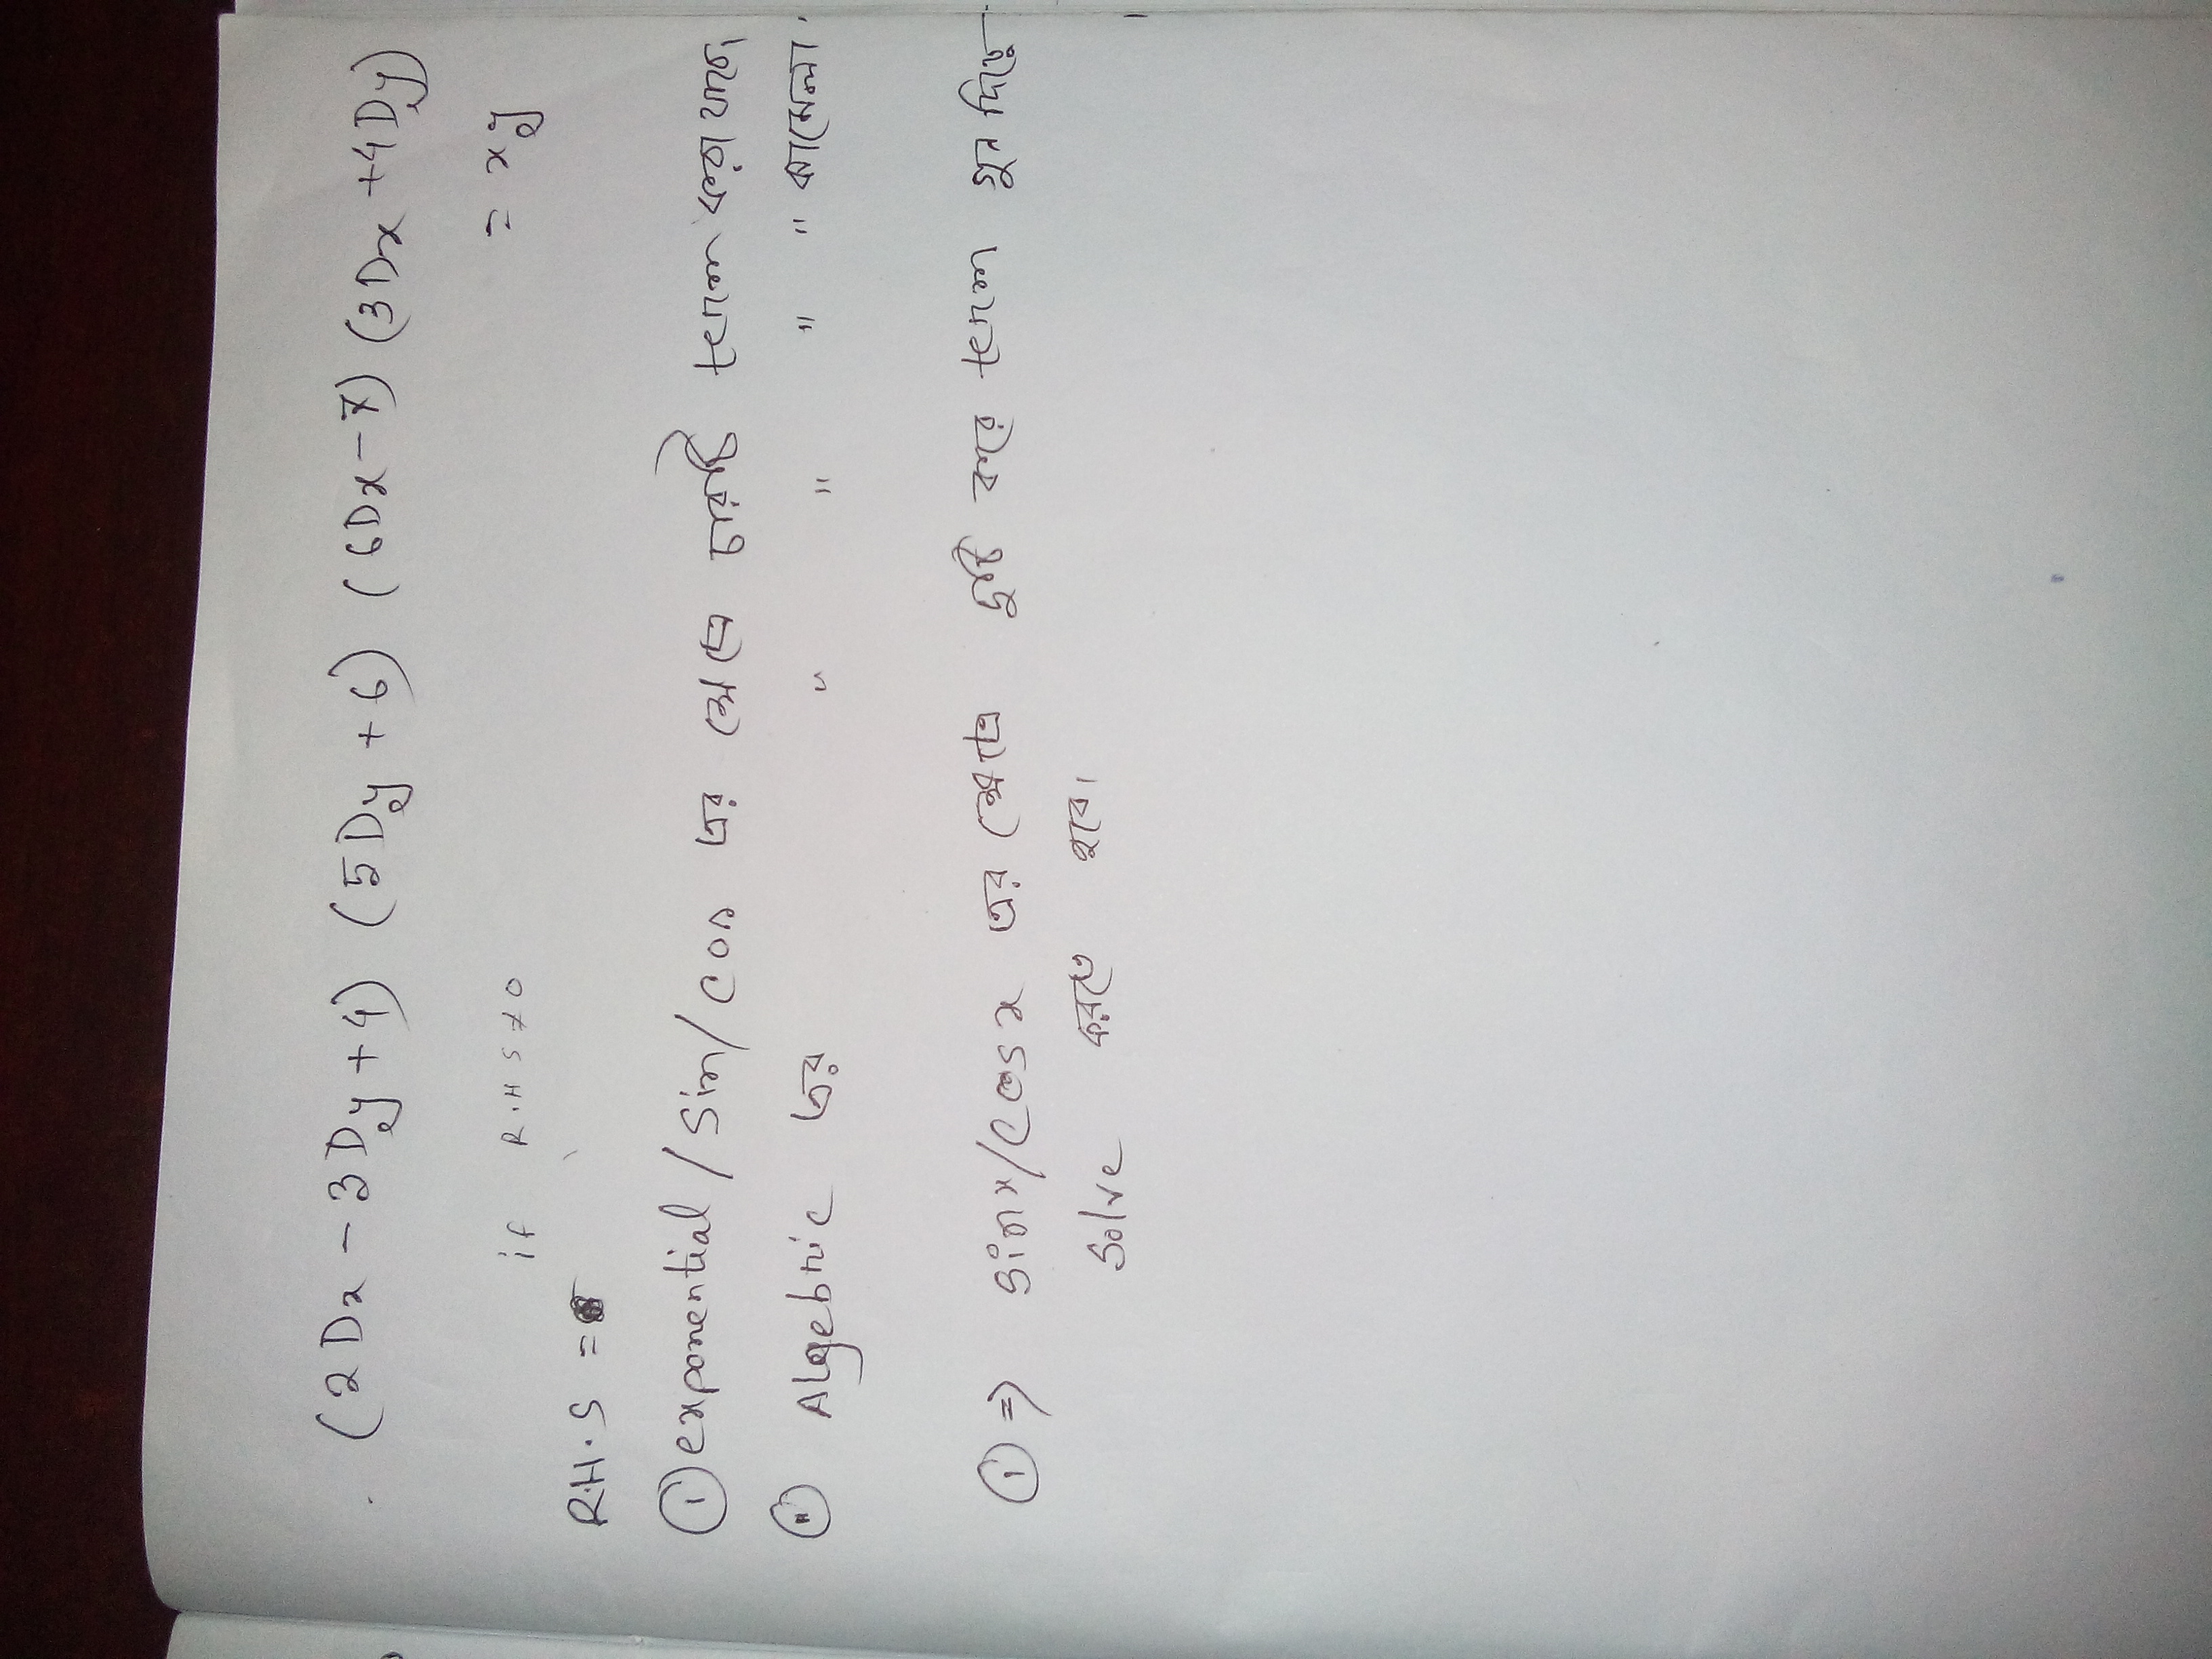 (2Dx - 3Dy + 4) (5Dy + 6) (6Dx - 7) (3Dx + 4Dy)
= xy
if R.H.S ≠ 0
R.H.S =
① exponential / Sin / Cos এর ক্ষেত্রে চারটি term করা যাবে,
② Algebric এর " " " " ঝামেলা,
① ⇒ Sinx / Cosx এর ক্ষেত্রে দুই বার term দিয়ে
Solve করতে হবে।